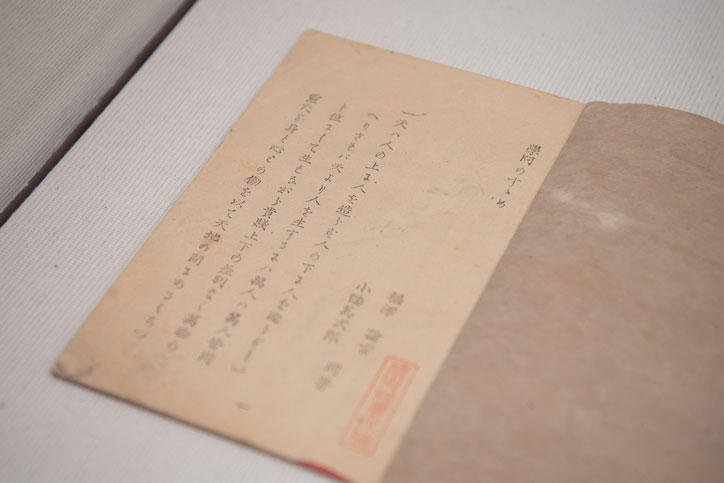 學問のすゝめ
福澤諭吉
小幡篤次郎 同著
一天ハ人の上に人を造らず人の下に人を造らずと
へりされバ天より人を生ずるにハ萬人ハ萬人皆同
じ位にして生れながら貴賤上下の差別なく萬物の
霊たる身と心との働を以て天地の間にある